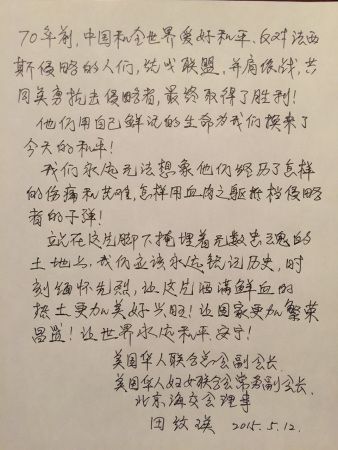 70年前,中国和全世界爱好和平、反对法西
斯侵略的人们,结成联盟,并肩作战,共
同英勇抗击侵略者,最终取得了胜利!
他们用自己鲜活的生命为我们换来了
今天的和平!
我们永远无法想象他们经历了怎样
的伤痛和苦难,怎样用血肉之躯抵挡侵略
者的子弹!
站在这片脚下掩埋着无数忠魂的
土地上,我们应该永远铭记历史,时
刻缅怀先烈,让这片洒满鲜血的
热土更加美好兴旺!让国家更加繁荣
昌盛!让世界永远和平、安宁!
美国华人联合总会副会长.
美国华人妇女联合会常务副会长.
北京海交会理事
田 瑛 2015.5.12.